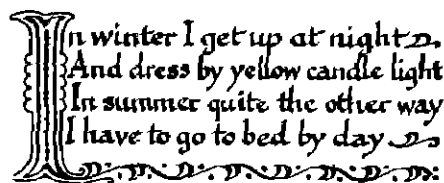 In winter I get up at night
And dress by yellow candle light
In summer quite the other way
I have to go to bed by day